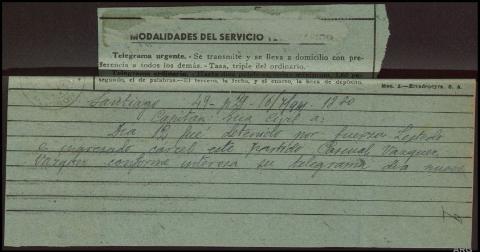 MODALIDADES DEL SERVICIO
Telegrama urgente. - Se transmite y se lleva a domicilio con pre-
ferencia a todos los demás. - Tasa, triple del ordinario.
Telegrama ordinario.
el de palabras.-El tercero, la fecha, y el cuarto, la hora de depósito.
Santiago 49-
Capitán Gua Civil a:
Dia 13 fue detenido por fuerza
e ingresado carcel este partido Pascual Vazquez
Vazquez conforme interesa su telegrama dia nueve